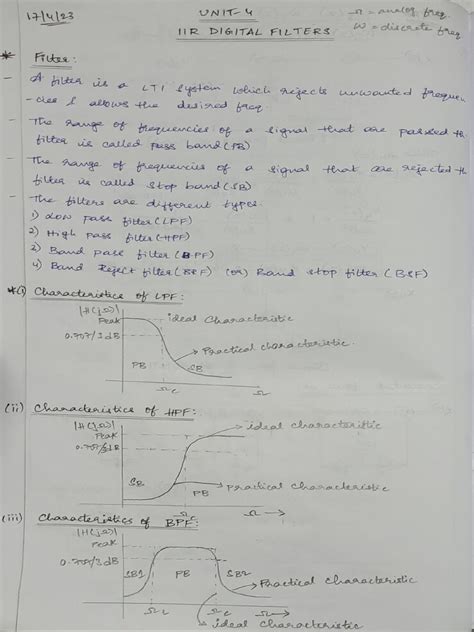 17/4/23
UNIT-4
Ω = analog freq.
IIR DIGITAL FILTERS
ω = discrete freq
* Filter:
- A filter is a LTI system which rejects unwanted frequen
-cies & allows the desired freq.
- The range of frequencies of a signal that are passed th
filter is called pass band (PB)
- The range of frequencies of a signal that are rejected th
filter is called stop band (SB)
- The filters are different types.
1) Low pass filter (LPF)
2) High pass filter (HPF)
3) Band pass filter (BPF)
4) Band Reject filter (BRF) (or) Band stop filter (BSF)
*(i) Characteristics of LPF:
|H(jΩ)|
Peak
ideal Characteristic
0.707/3dB
Practical characteristic.
PB
SB
Ωc
Ω
(ii) Characteristics of HPF:
|H(jΩ)|
Peak
ideal characteristic
0.707/3dB
SB
PB
practical characteristic
Ωc
Ω →
(iii) Characteristics of BPF:
|H(jΩ)|
Peak
0.707/3dB
SB1
PB
SB2
Practical characteristic
Ωc
Ωc
Ω →
ideal characteristic